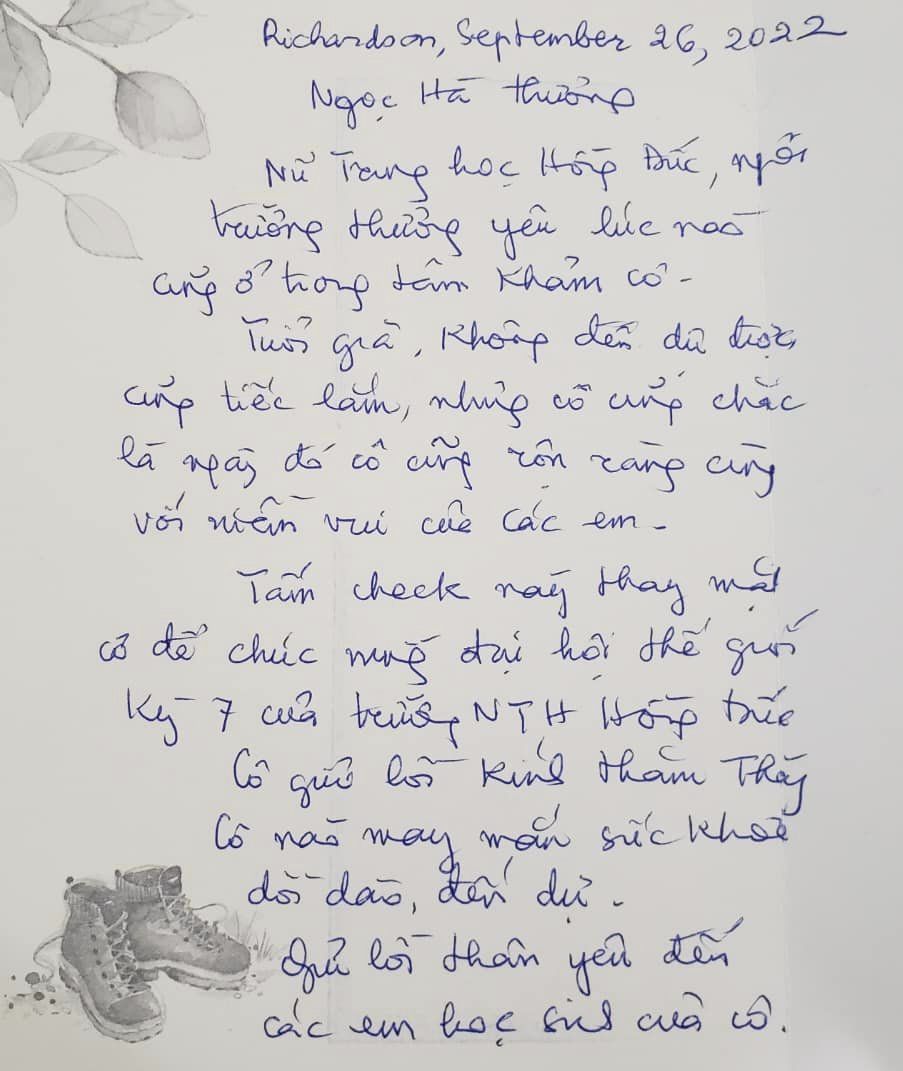 Richardson, September 26, 2022
Ngọc Hà thương
Nữ Trung học Hồng Đức, ngôi
trường thương yêu lúc nào
cũng ở trong tâm khảm cô -
Tuổi già, không đến dự được
cũng tiếc lắm, nhưng cô cũng chắc
là ngày đó cô cũng rộn ràng cùng
với niềm vui của các em -
Tấm check này thay mặt
cô để chúc mừng đại hội thế giới
kỳ 7 của trường NTH Hồng Đức
Cô gửi lời kính thăm Thầy
Cô nào may mắn sức khoẻ
dồi dào, đến dự -
Gửi lời thân yêu đến
các em học sinh của cô.